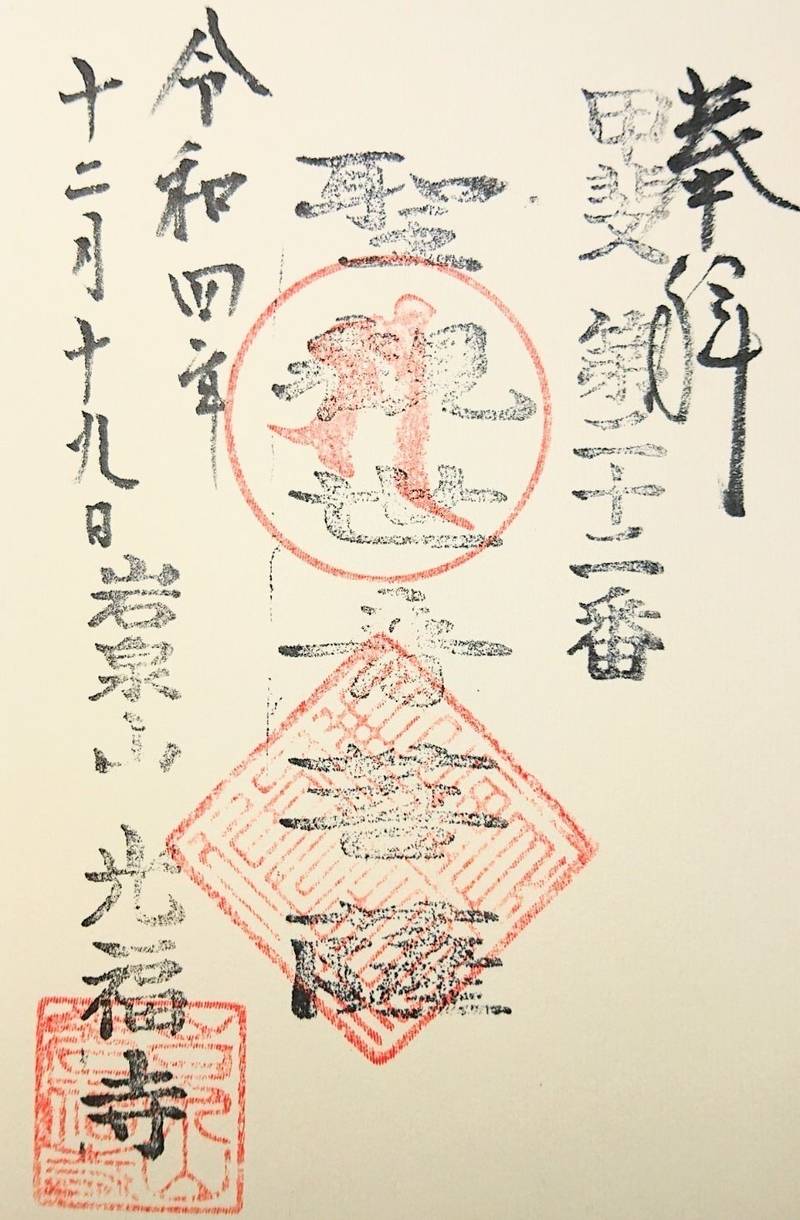 奉拝
甲斐 第二十二番
聖観世音菩薩
令和四年
十二月十九日
岩泉山 光福寺